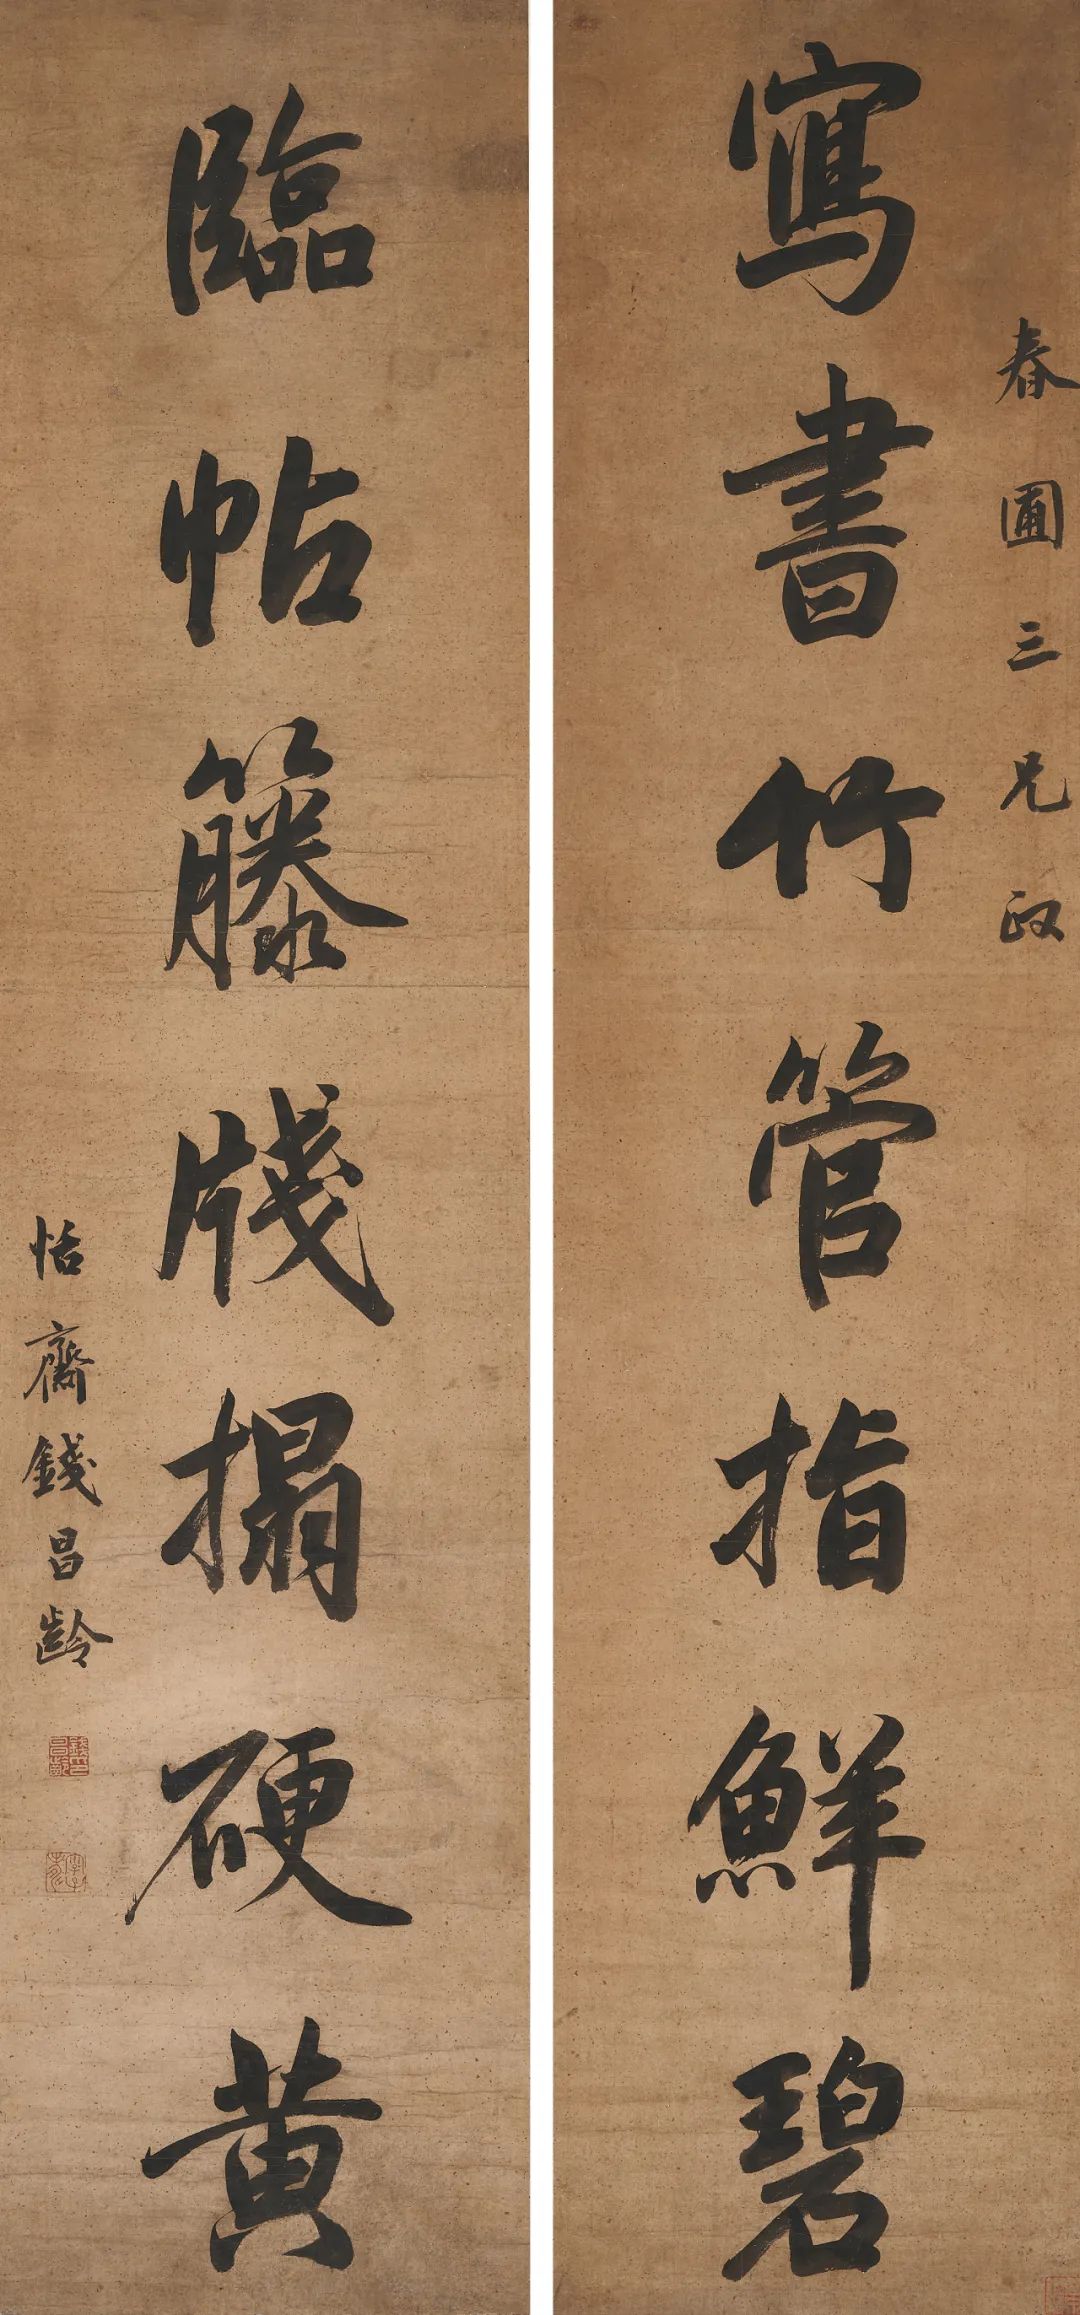 春圃三兄政
寫書竹管指鮮碧
臨帖籐牋搨硬黃
怡齋錢昌齡